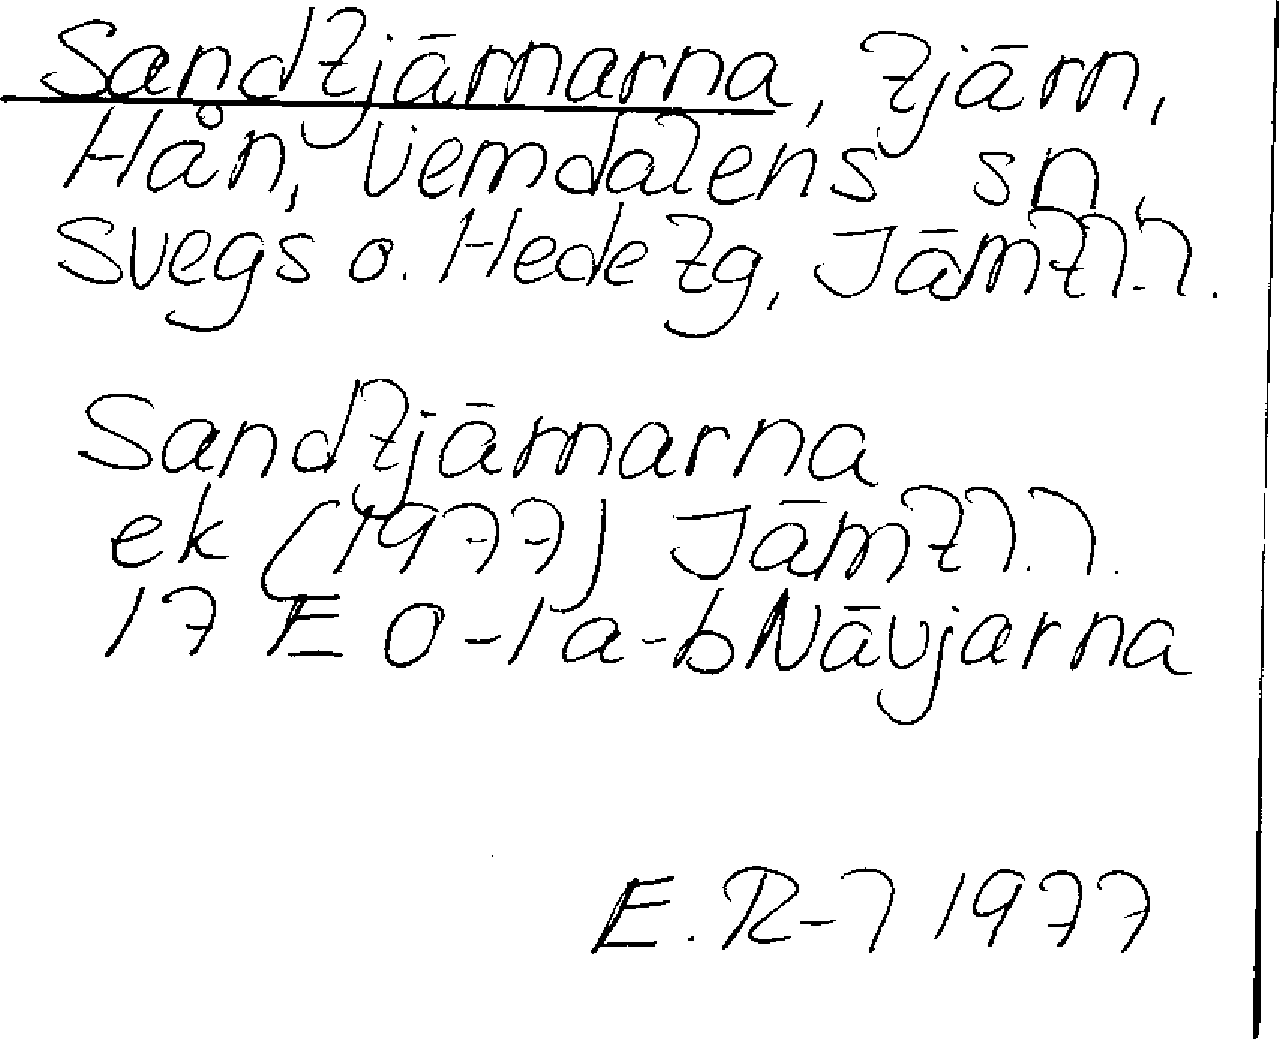 Sandtjärnarna, tjärn,
Hån, Vemdalens sn,
Svegs o. Hede tg, Jämtl. l.
Sandtjärnarna
ek (1977) Jämtl. l.
17 E 0-1 a-b Nävjarna
E. R-l 1977